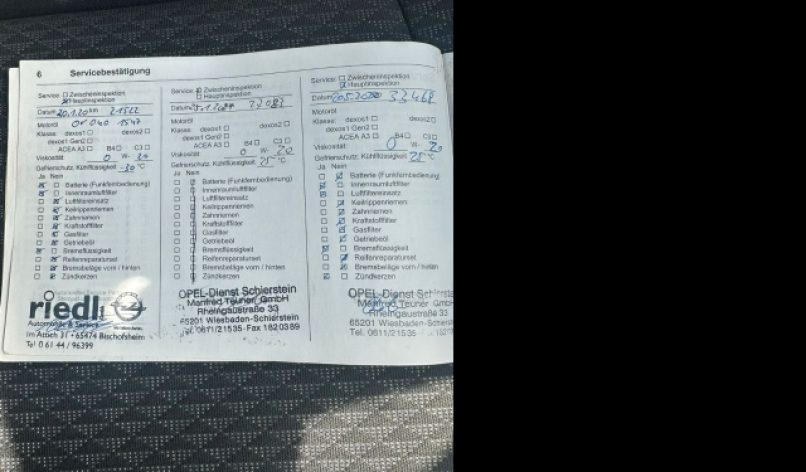 6 Servicebestätigung
Service: Zwischeninspektion
Hauptinspektion
Datum 20.1.20 km 21522
Motoröl OV 040 1547
Klasse: dexos1 dexos2
dexos1 Gen2
ACEA A3 B4 C3
Viskosität 0 W- 20
Gefrierschutz, Kühlflüssigkeit -30 °C
Ja Nein
Batterie (Funkfernbedienung)
Innenraumluftfilter
Luftfiltereinsatz
Keilrippenriemen
Zahnriemen
Kraftstofffilter
Gasfilter
Getriebeöl
Bremsflüssigkeit
Reifenreparaturset
Bremsbeläge vorn / hinten
Zündkerzen
riedl
Automobile & Service
Im Attich 31 • 65474 Bischofsheim
Tel 0 61 44 / 96399
Service: Zwischeninspektion
Hauptinspektion
Datum
Motoröl
Klasse: dexos1 dexos2
dexos1 Gen2
ACEA A3 B4 C3
Viskosität 0 W- 20
Gefrierschutz, Kühlflüssigkeit 25 °C
Ja Nein
Batterie (Funkfernbedienung)
Innenraumluftfilter
Luftfiltereinsatz
Keilrippenriemen
Zahnriemen
Kraftstofffilter
Gasfilter
Getriebeöl
Bremsflüssigkeit
Reifenreparaturset
Bremsbeläge vorn / hinten
Zündkerzen
OPEL-Dienst Schierstein
Manfred Teuner GmbH
Rheingaustraße 33
65201 Wiesbaden-Schierstein
Tel. 0611/21535 Fax 1820389
Service: Zwischeninspektion
Hauptinspektion
Datum 33468
Motoröl
Klasse: dexos1 dexos2
dexos1 Gen2
ACEA A3 B4 C3
Viskosität 0 W- 20
Gefrierschutz, Kühlflüssigkeit 25 °C
Ja Nein
Batterie (Funkfernbedienung)
Innenraumluftfilter
Luftfiltereinsatz
Keilrippenriemen
Zahnriemen
Kraftstofffilter
Gasfilter
Getriebeöl
Bremsflüssigkeit
Reifenreparaturset
Bremsbeläge vorn / hinten
Zündkerzen
OPEL-Dienst Schierste
Manfred Teuner GmbH
Rheingaustraße 33
65201 Wiesbaden-Schierste
Tel. 0611/21535